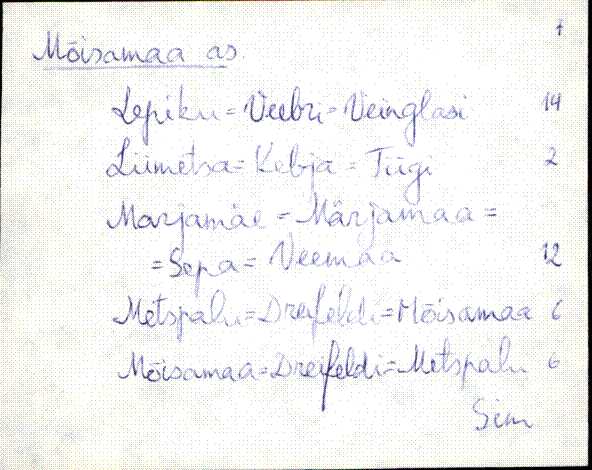 7
Mõisamaa as.
Lepiku = Veebri = Veinglasi 14
Liimetsa = Kebja = Tiigi 2
Marjamäe = Märjamaa =
= Sepa = Veemaa 12
Metspalu = Dreifeldi = Mõisamaa 6
Mõisamaa = Dreifeldi = Metspalu 6
Sim